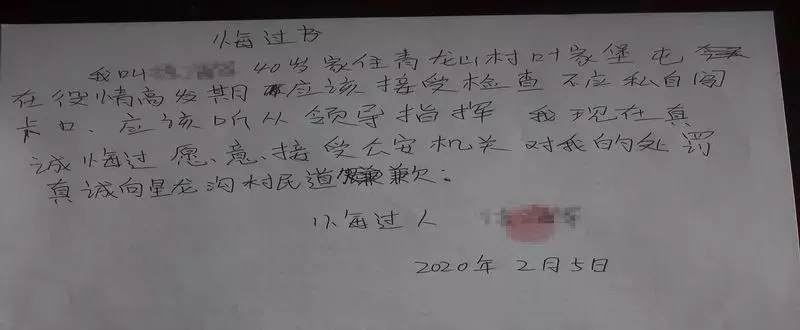 悔过书
我叫 40岁家住青龙山村叶家堡屯
在役情高发期应该接受检查不应私自闯
卡口、应该听从领导指挥 我现在真
诚悔过愿、意、接受公安机关对我的处罚
真诚向星龙沟村民道歉:
悔过人
2020年2月5日